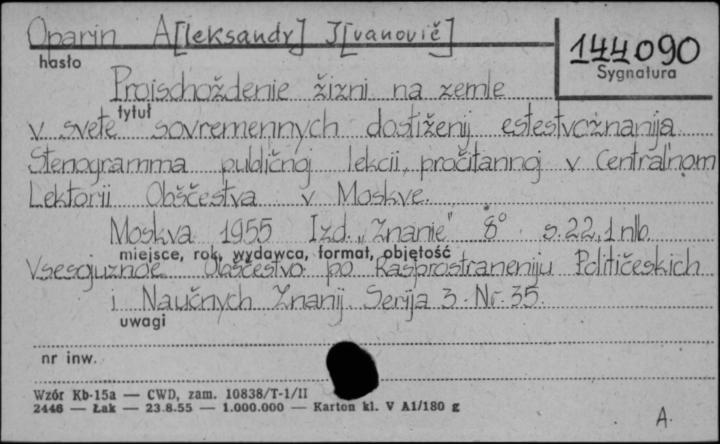 Oparin A[leksandr] I[vanovič]
144090
hasło
Sygnatura
Proischoždenie žizni na zemle
tytuł
v svete sovremennych dostiženij estestvoznanija.
Stenogramma publičnoj lekcii, pročitannoj v Central'nom
Lektorii Obščestva v Moskve.
Moskva 1955 Izd. „Znanie" 8° s. 22, 1 nlb.
miejsce, rok, wydawca, format, objętość
Vsesojuznoe Obščestvo po Rasprostraneniju Političeskich
i Naučnych Znanij. Serija 3. Nr. 35.
uwagi
nr inw.
Wzór Kb-15a — CWD, zam. 10838/T-1/II
2446 — Łak — 23.8.55 — 1.000.000 — Karton kl. V A1/180 g
A.